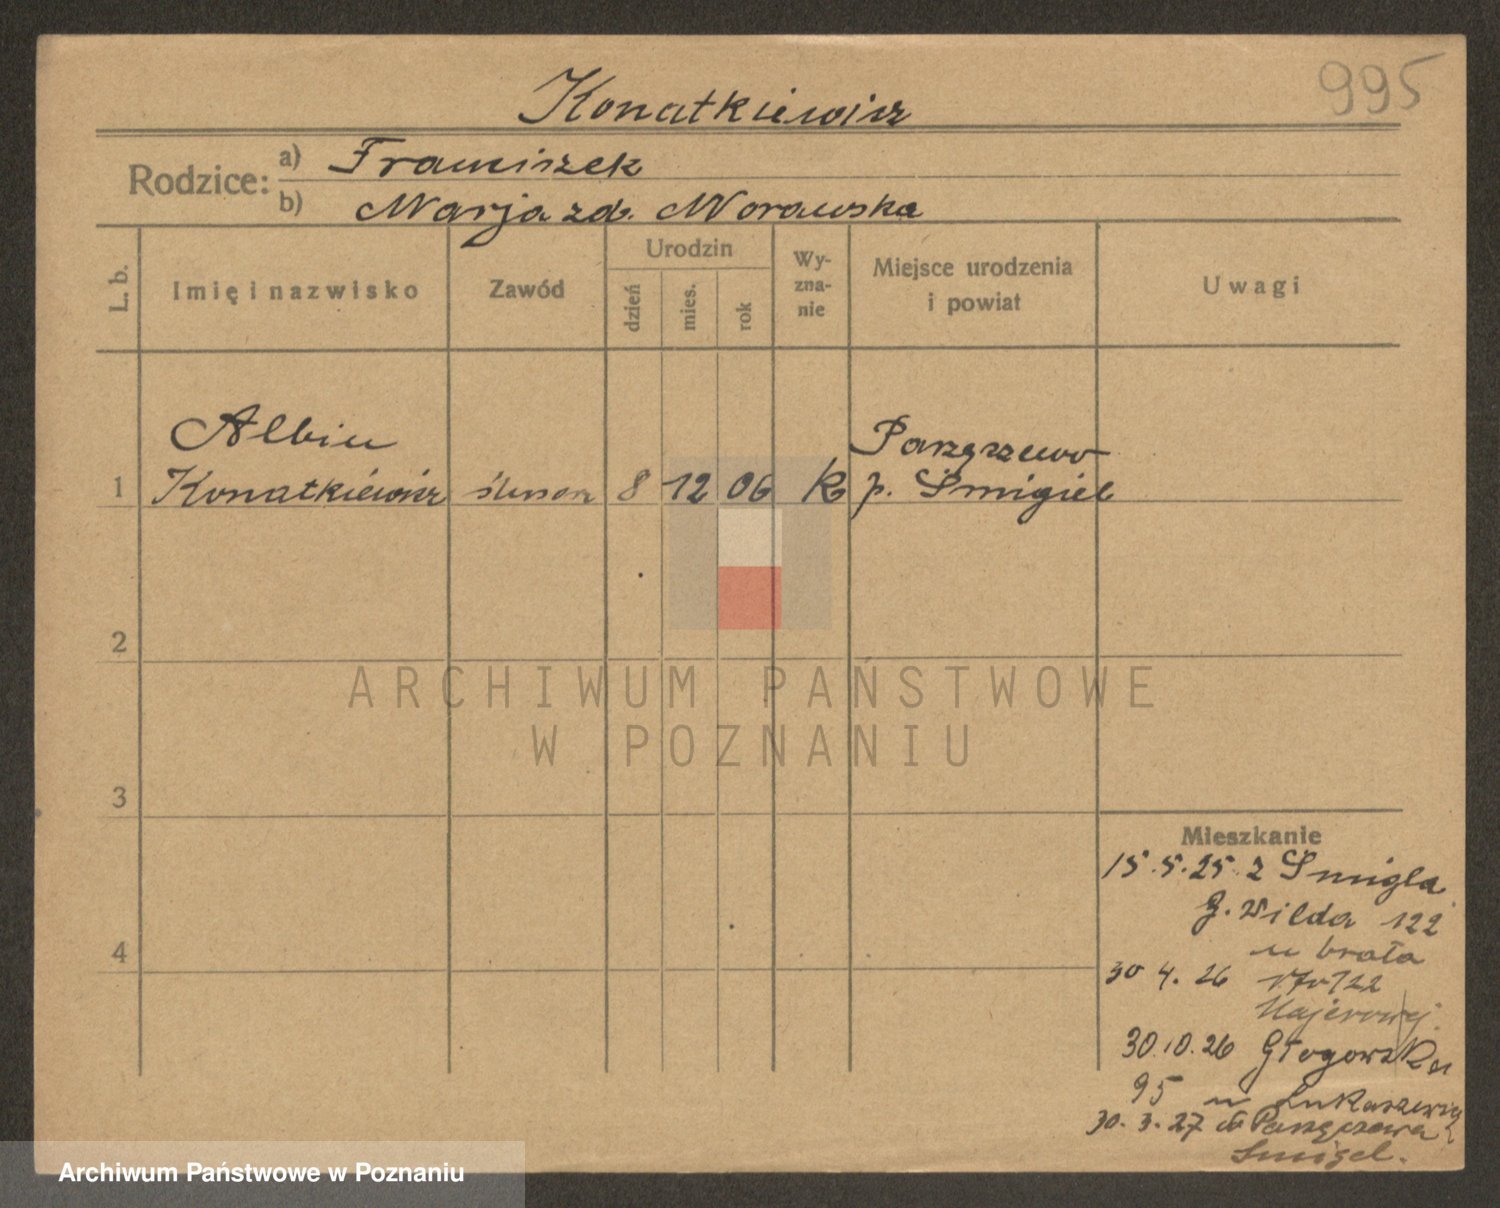 995
Konatkiewicz
Rodzice: a) Franciszek
b) Marja zd. Morawska
L. b.
Imię i nazwisko
Zawód
Urodzin
dzień
mies.
rok
Wy-
zna-
nie
Miejsce urodzenia
i powiat
Uwagi
Albin
Parzęczewo
1 Konatkiewicz ślusarz 8 12 06 K p. Śmigiel
2
3
4
ARCHIWUM PAŃSTWOWE
W POZNANIU
Mieszkanie
15.5.25 z Śmigla
G. Wilda 122
u brata
30 4. 26
Majerowej
30.10.26 Głogowska
95 u Łukaszewicz
30.3.27 do Parzęczewa
Śmigel.
Archiwum Państwowe w Poznaniu